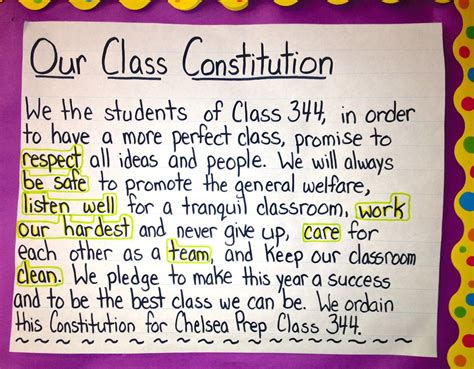 Our Class Constitution
We the students of Class 344, in order
to have a more perfect class, promise to
respect all ideas and people. We will always
be safe to promote the general welfare,
listen well for a tranquil classroom, work
our hardest and never give up, care for
each other as a team, and keep our classroom
clean. We pledge to make this year a success
and to be the best class we can be. We ordain
this Constitution for Chelsea Prep Class 344.